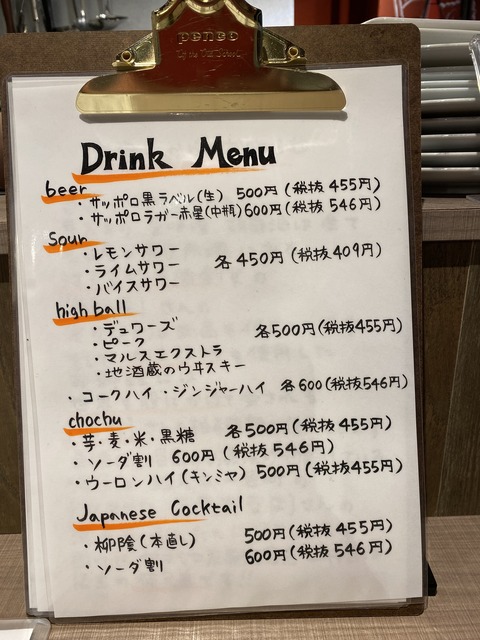 penco
Drink Menu
beer
・サッポロ黒ラベル(生) 500円(税抜 455円)
・サッポロラガー赤星(中瓶) 600円(税抜 546円)
Sour
・レモンサワー
・ライムサワー 各 450円(税抜409円)
・バイスサワー
high ball
・デュワーズ 各500円(税抜455円)
・ピーク
・マルスエクストラ
・地酒蔵のウヰスキー
・コークハイ・ジンジャーハイ 各600(税抜546円)
chochu
・芋・麦・米・黒糖 各500円(税抜455円)
・ソーダ割 600円(税抜 546円)
・ウーロンハイ(キンミヤ) 500円(税抜455円)
Japanese Cocktail
・柳陰(本直し) 500円(税抜 455円)
・ソーダ割 600円(税抜 546円)